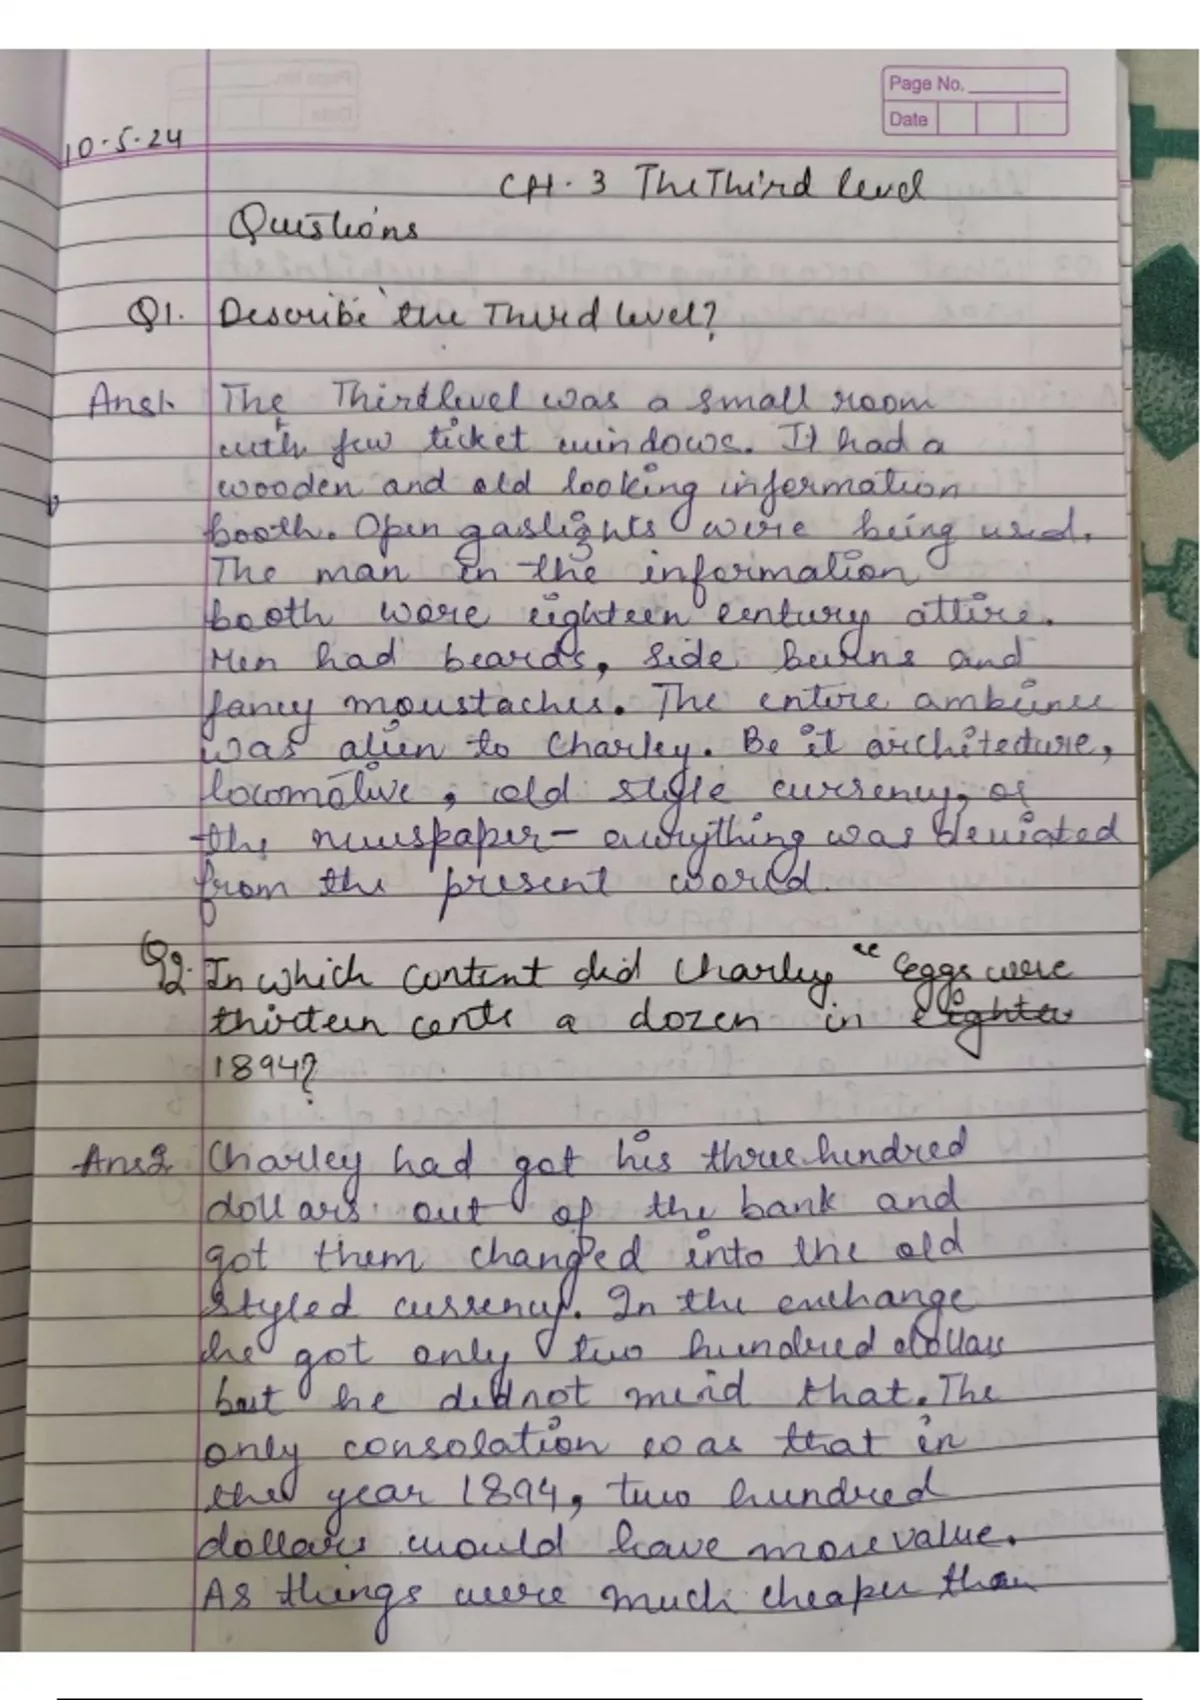 Page No.
Date
10-5-24
CH. 3 The Third level
Questions
Q1. Describe the Third level?
Ans1. The Third level was a small room
with few ticket windows. It had a
wooden and old looking information
booth. Open gaslights were being used.
The man in the information
booth wore eighteen century attire.
Men had beards, side burns and
fancy moustaches. The entire ambience
was alien to Charley. Be it architecture,
locomotive, old style currency, or
the newspaper - everything was deviated
from the present world.
Q2. In which content did Charley "eggs were
thirteen cents a dozen in eighte
1894?
Ans2 Charley had got his three hundred
dollars out of the bank and
got them changed into the old
styled currency. In the exchange
he got only two hundred dollars
but he did not mind that. The
only consolation was that in
the year 1894, two hundred
dollars would have more value.
As things were much cheaper than